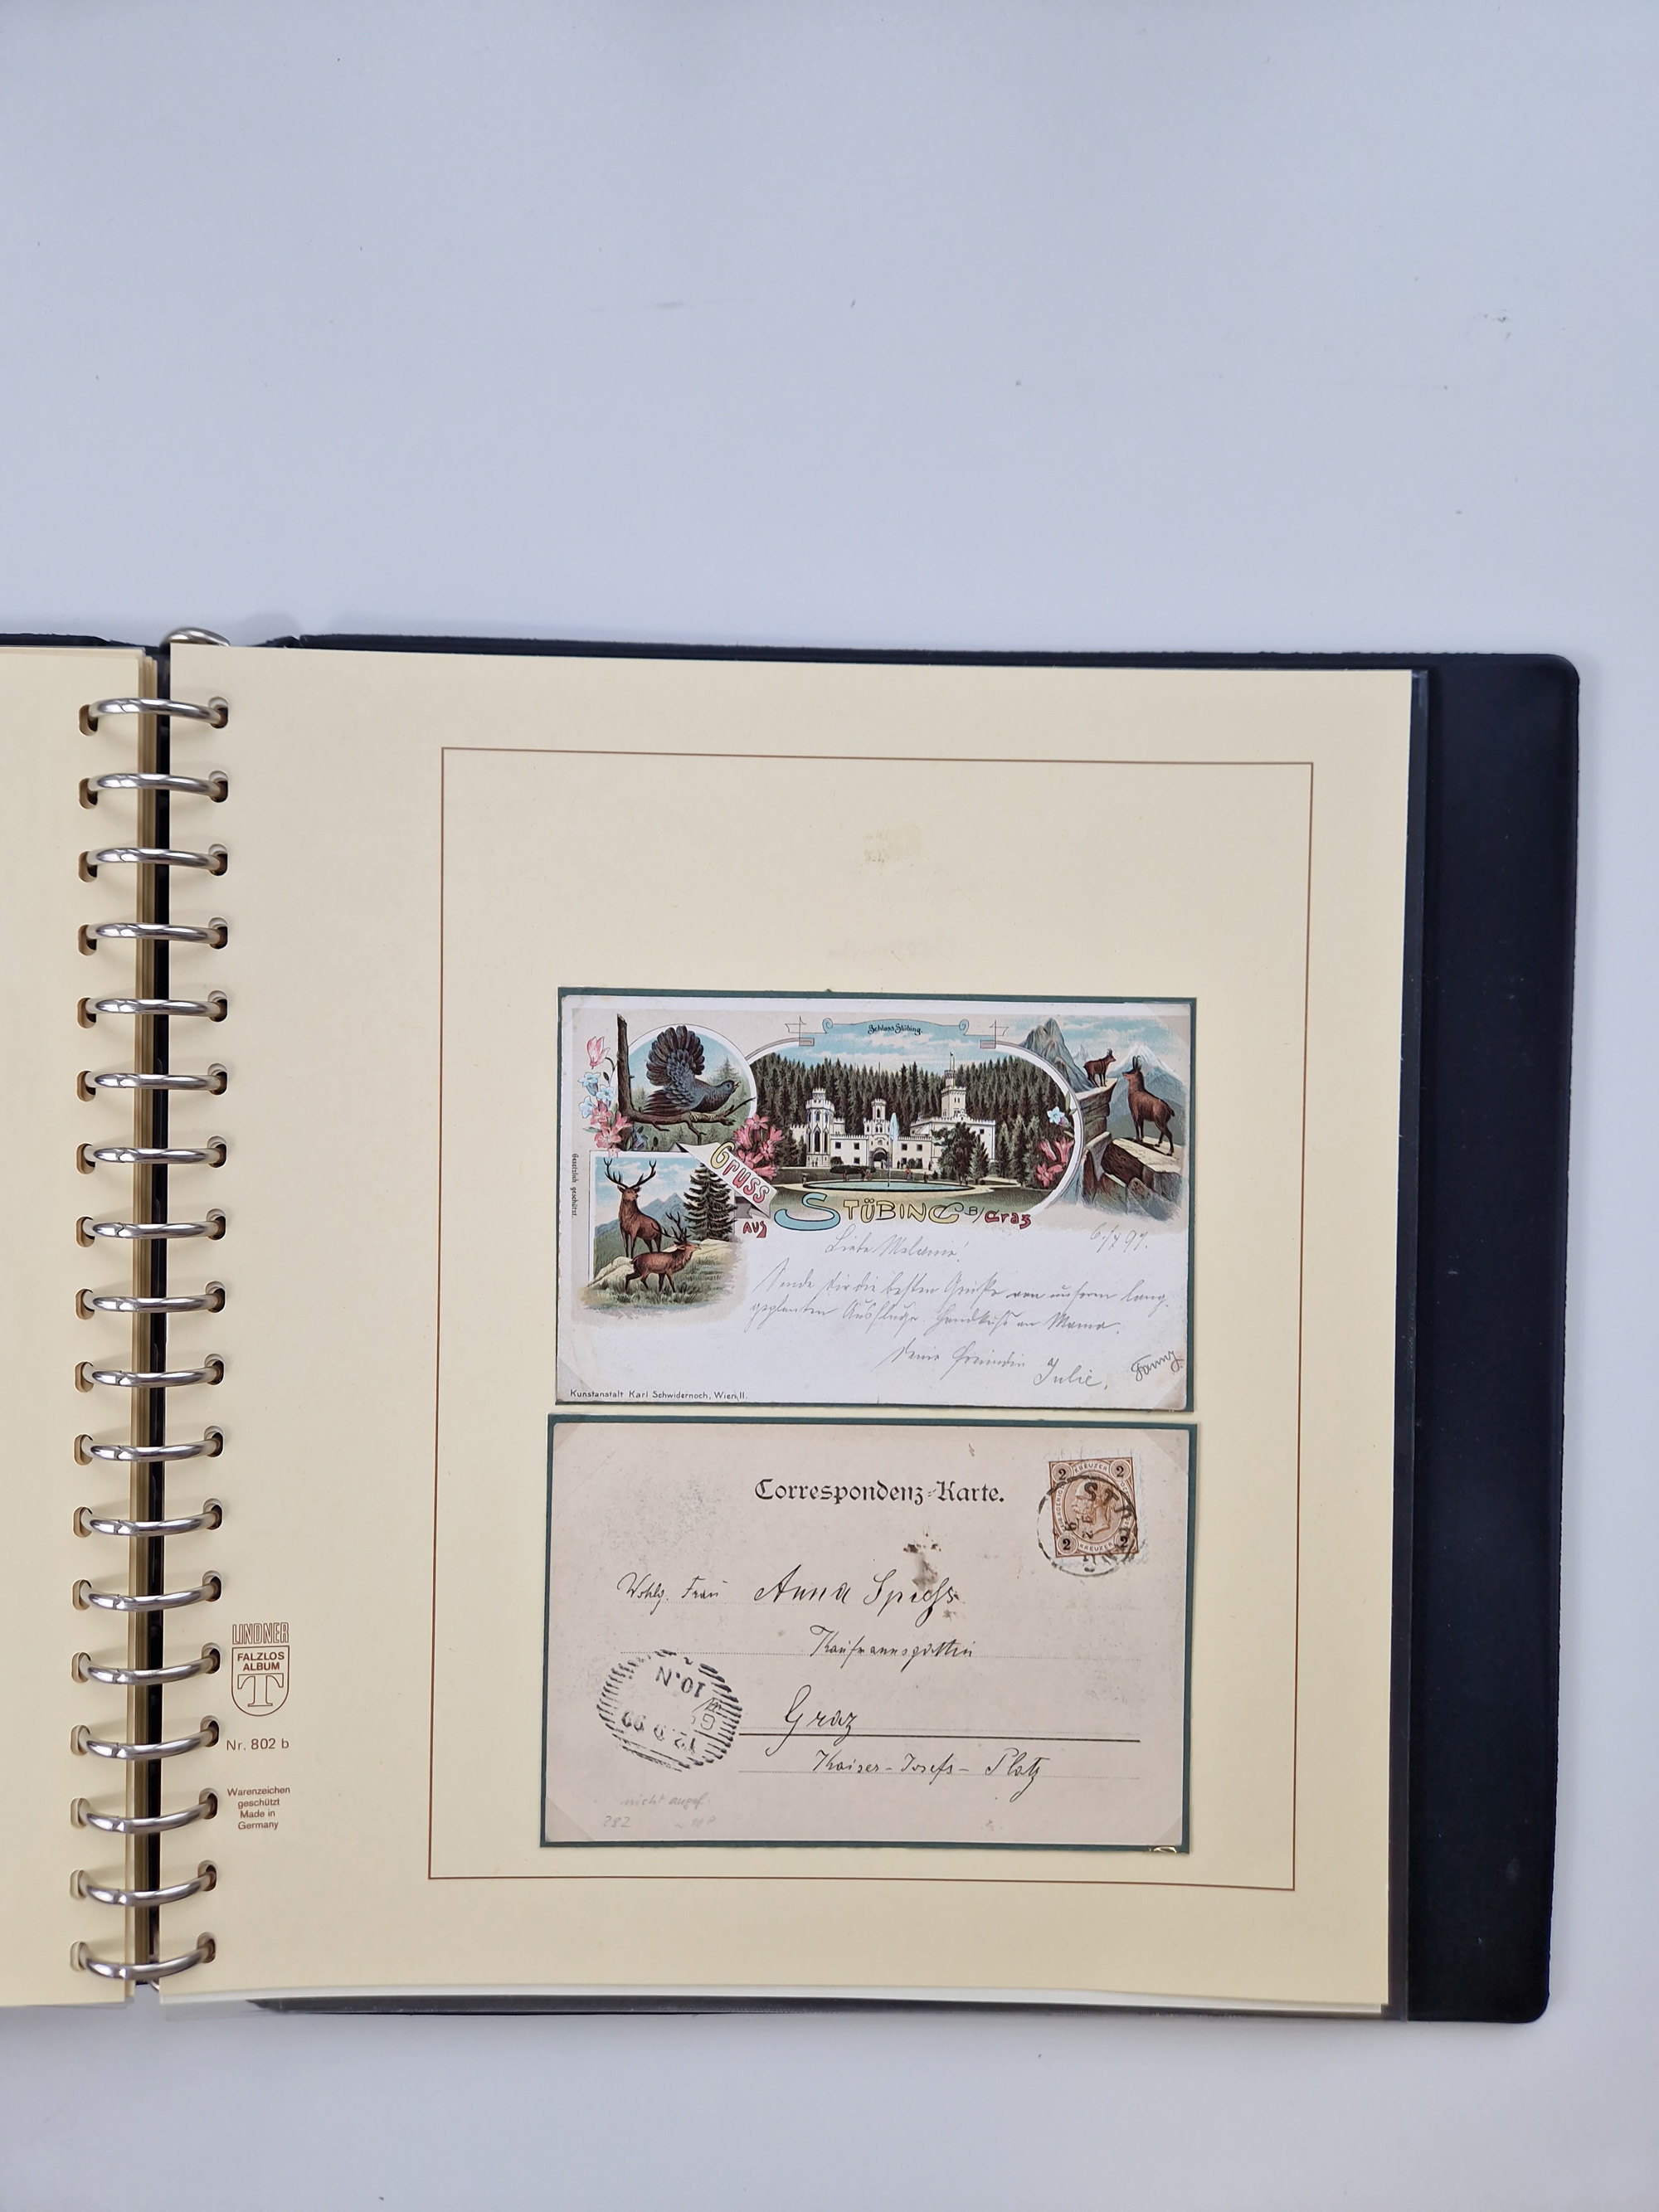 Schloss Stübing.
Gesetzlich geschützt.
GRUSS
AUS
STÜBING B/ Graz
Liebe Melanie!
Sende Dir die besten Grüße von unserem lang-
geplanten Ausfluge. Handkuß an Mama.
Deine Freundin
Julie.
Fanny
Kunstanstalt Karl Schwidernoch, Wien, II.
Correspondenz-Karte.
2 KREUZER 2
2 KREUZER 2
Wohlg. Frau Anna Spiess
Kaufmannsgattin
10.N
12.9.99
Graz
Kaiser-Josefs-Platz
nicht
282
LINDNER
FALZLOS
ALBUM
T
Nr. 802 b
Warenzeichen
geschützt
Made in
Germany